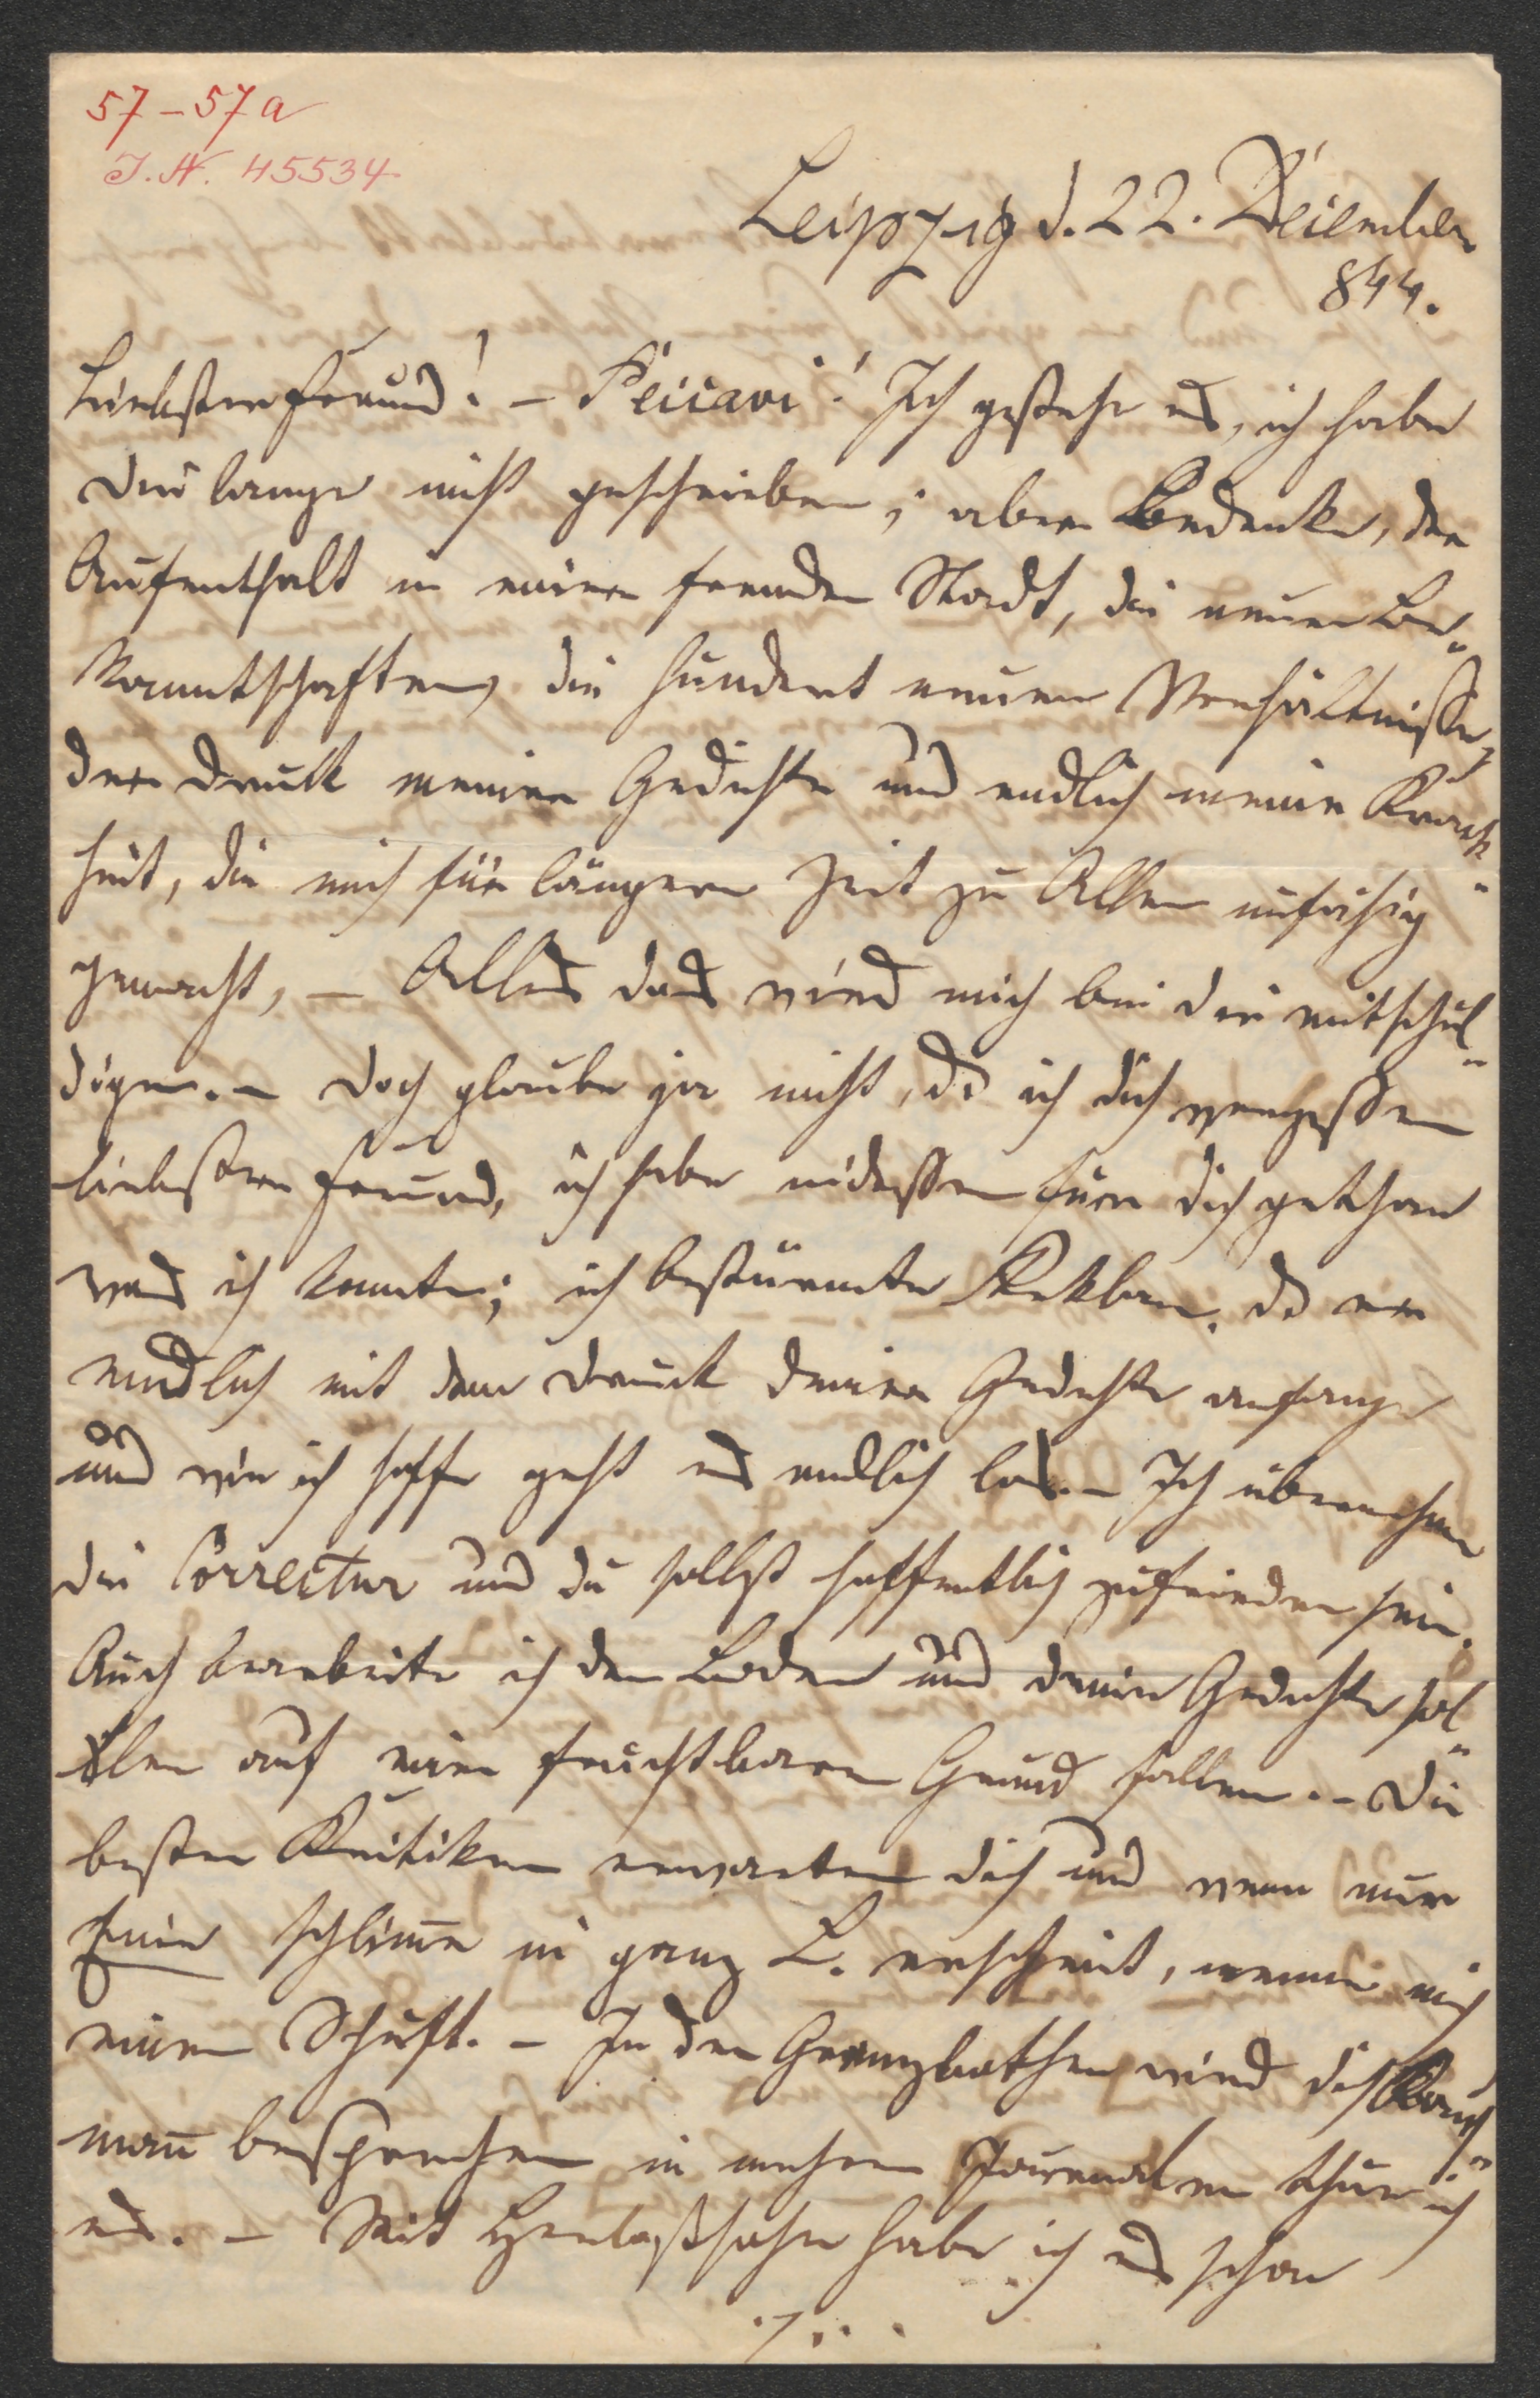 57-57a
I.N. 45534
Leipzig d. 22. Dezember
844.
Liebster Freund! – Peccavi! Ich gestehe es, ich habe
dir lange nicht geschrieben; aber bedenke, der
Aufenthalt in einer fremden Stadt, die neuen Be-
kanntschaften, die hundert neuen Verhältniße,
der Druck meiner Gedichte und endlich meine Krank-
heit, die mich für längere Zeit zu Allem unfähig
gemacht, – Alles das wird mich bei dir entschul-
digen. – Doch glaube ja nicht, dß ich dich vergeßen
liebster Freund, ich habe indeßen für dich gethan
was ich konnte; ich bestürmte Reklam, dß er
endlich mit dem Druck deiner Gedichte anfange
und wie ich hoffe geht es endlich los. – Ich übernehme
die Correctur und du sollst hoffentlich zufrieden sein.
Auch bearbeite ich den Boden und deine Gedichte sol-
len auf einen fruchtbaren Grund fallen. – Die
besten Kritiken erwarten dich und wenn nur
Eine schlim̅e in ganz L. erscheint, nenne mich
einen Schuft. – In den Grenzbothen wird dich
man̅ besprechen in mehren Journalen thue ich
es. – Mit Herloßsohn habe ich es schon
./.